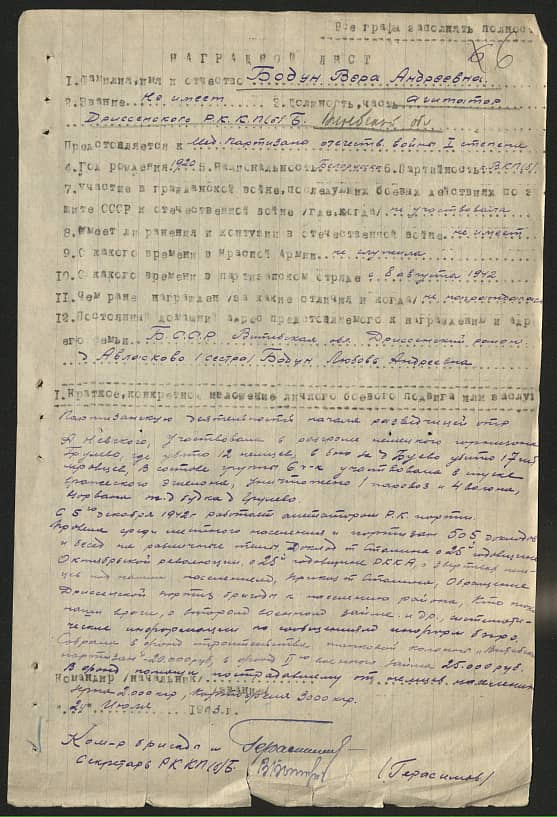 Все графы заполнять полност
6
НАГРАДНОЙ ЛИСТ
1. Фамилия, имя и отчество Бодун Вера Андреевна
2. Звание Не имеет 3. Должность, часть агитатор
Дриссенского Р.К. КП(б)Б. Витебской обл
Представляется к Мед. Партизану отечеств. войны I степени
4. Год рождения 1920 5. Национальность Белоруска 6. Партийность ВКП(б)
7. Участие в гражданской войне, последующих боевых действиях по з
щите СССР и отечественной войне /где, когда/ не участвовала
8. Имеет ли ранения и контузии в отечественной войне не имеет
9. С какого времени в Красной Армии не служила
10. С какого времени в партизанском отряде с 8 августа 1942
11. Чем ранее награжден /за какие отличия и когда/ не
12. Постоянный домашний адрес представляемого к награждению и адре
его семьи Б.С.С.Р. Витебская обл. Дриссенский район
д Авласково /сестра/ Бодун Любовь Андреевна
I. Краткое, конкретное изложение личного боевого подвига или заслу
Партизанскую деятельность начала разведчицей отр
А. Невского, участвовала в разгроме немецкого гарнизона
где убито 12 немцев, в бою за д убито 17
В составе группы 6 ч-к участвовала в спуске
вражеского эшелона, уничтожено 1 паровоз и 4 вагона,
С 5го декабря 1942г работает агитатором Р.К. партии.
Провела среди местного населения и партизан 505 докладов
и бесед на различные темы: Доклад т Сталина о 25й годовщине
Октябрьской революции, о 25й годовщине РККА, о зверствах нем-
цев над нашим населением, приказ т Сталина, Обращение
Дриссенской партиз бригады к населению района, Кто такие
наши враги, о второй военной займе и др.,
ческие информации по сообщениям информ бюро,
Собрала в фонд строительства танковой колонны
партизан -20.000 руб, в фонд IIго военного займа 25.000 руб.
В фонд помощи пострадавшему от немцев населению
Командир /начальник/
зерна 2.000 кгр, картофеля 3000 кгр.
24 Июля 1943 г.
Ком-р бригады и
Секретарь РК КП(б)Б. (Герасимов)